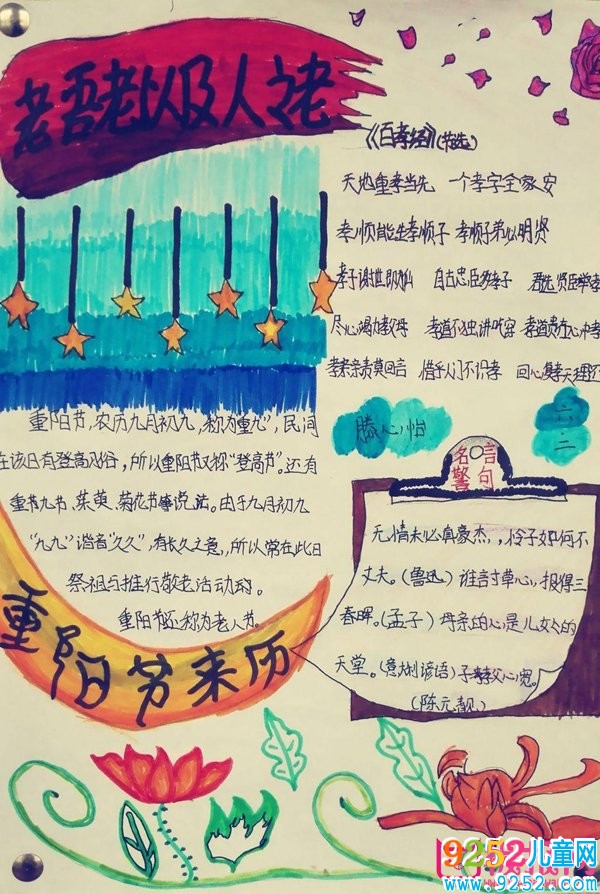 老吾老以及人之老
《百孝经》(节选)
天地重孝当先 一个孝字全家安
孝顺能生孝顺子 孝顺子弟必明贤
自古忠臣多孝子 君选贤臣举孝
尽心竭力孝父母 孝道不独讲吃穿 孝道贵在心中孝
孝亲亲责莫回言 惜乎人间不识孝 回心复孝天理还
滕心怡
六
二
重阳节,农历九月初九,称为“重九”,民间
在该日有登高习俗,所以重阳节又称“登高节”。还有
重九节、茱萸、菊花节等说法。由于九月初九
“九九”谐音“久久”,有长久之意,所以常在此日
祭祖与推行敬老活动的。
重阳节还称为老人节。
重阳节来历
名言
警句
无情未必真豪杰,,怜子如何不
丈夫。(鲁迅) 谁言寸草心,报得三
春晖。(孟子) 母亲的心是儿女的
天堂。(意大利谚语) 子孝父心宽。
(陈元靓)
9252儿童网
www.9252.com